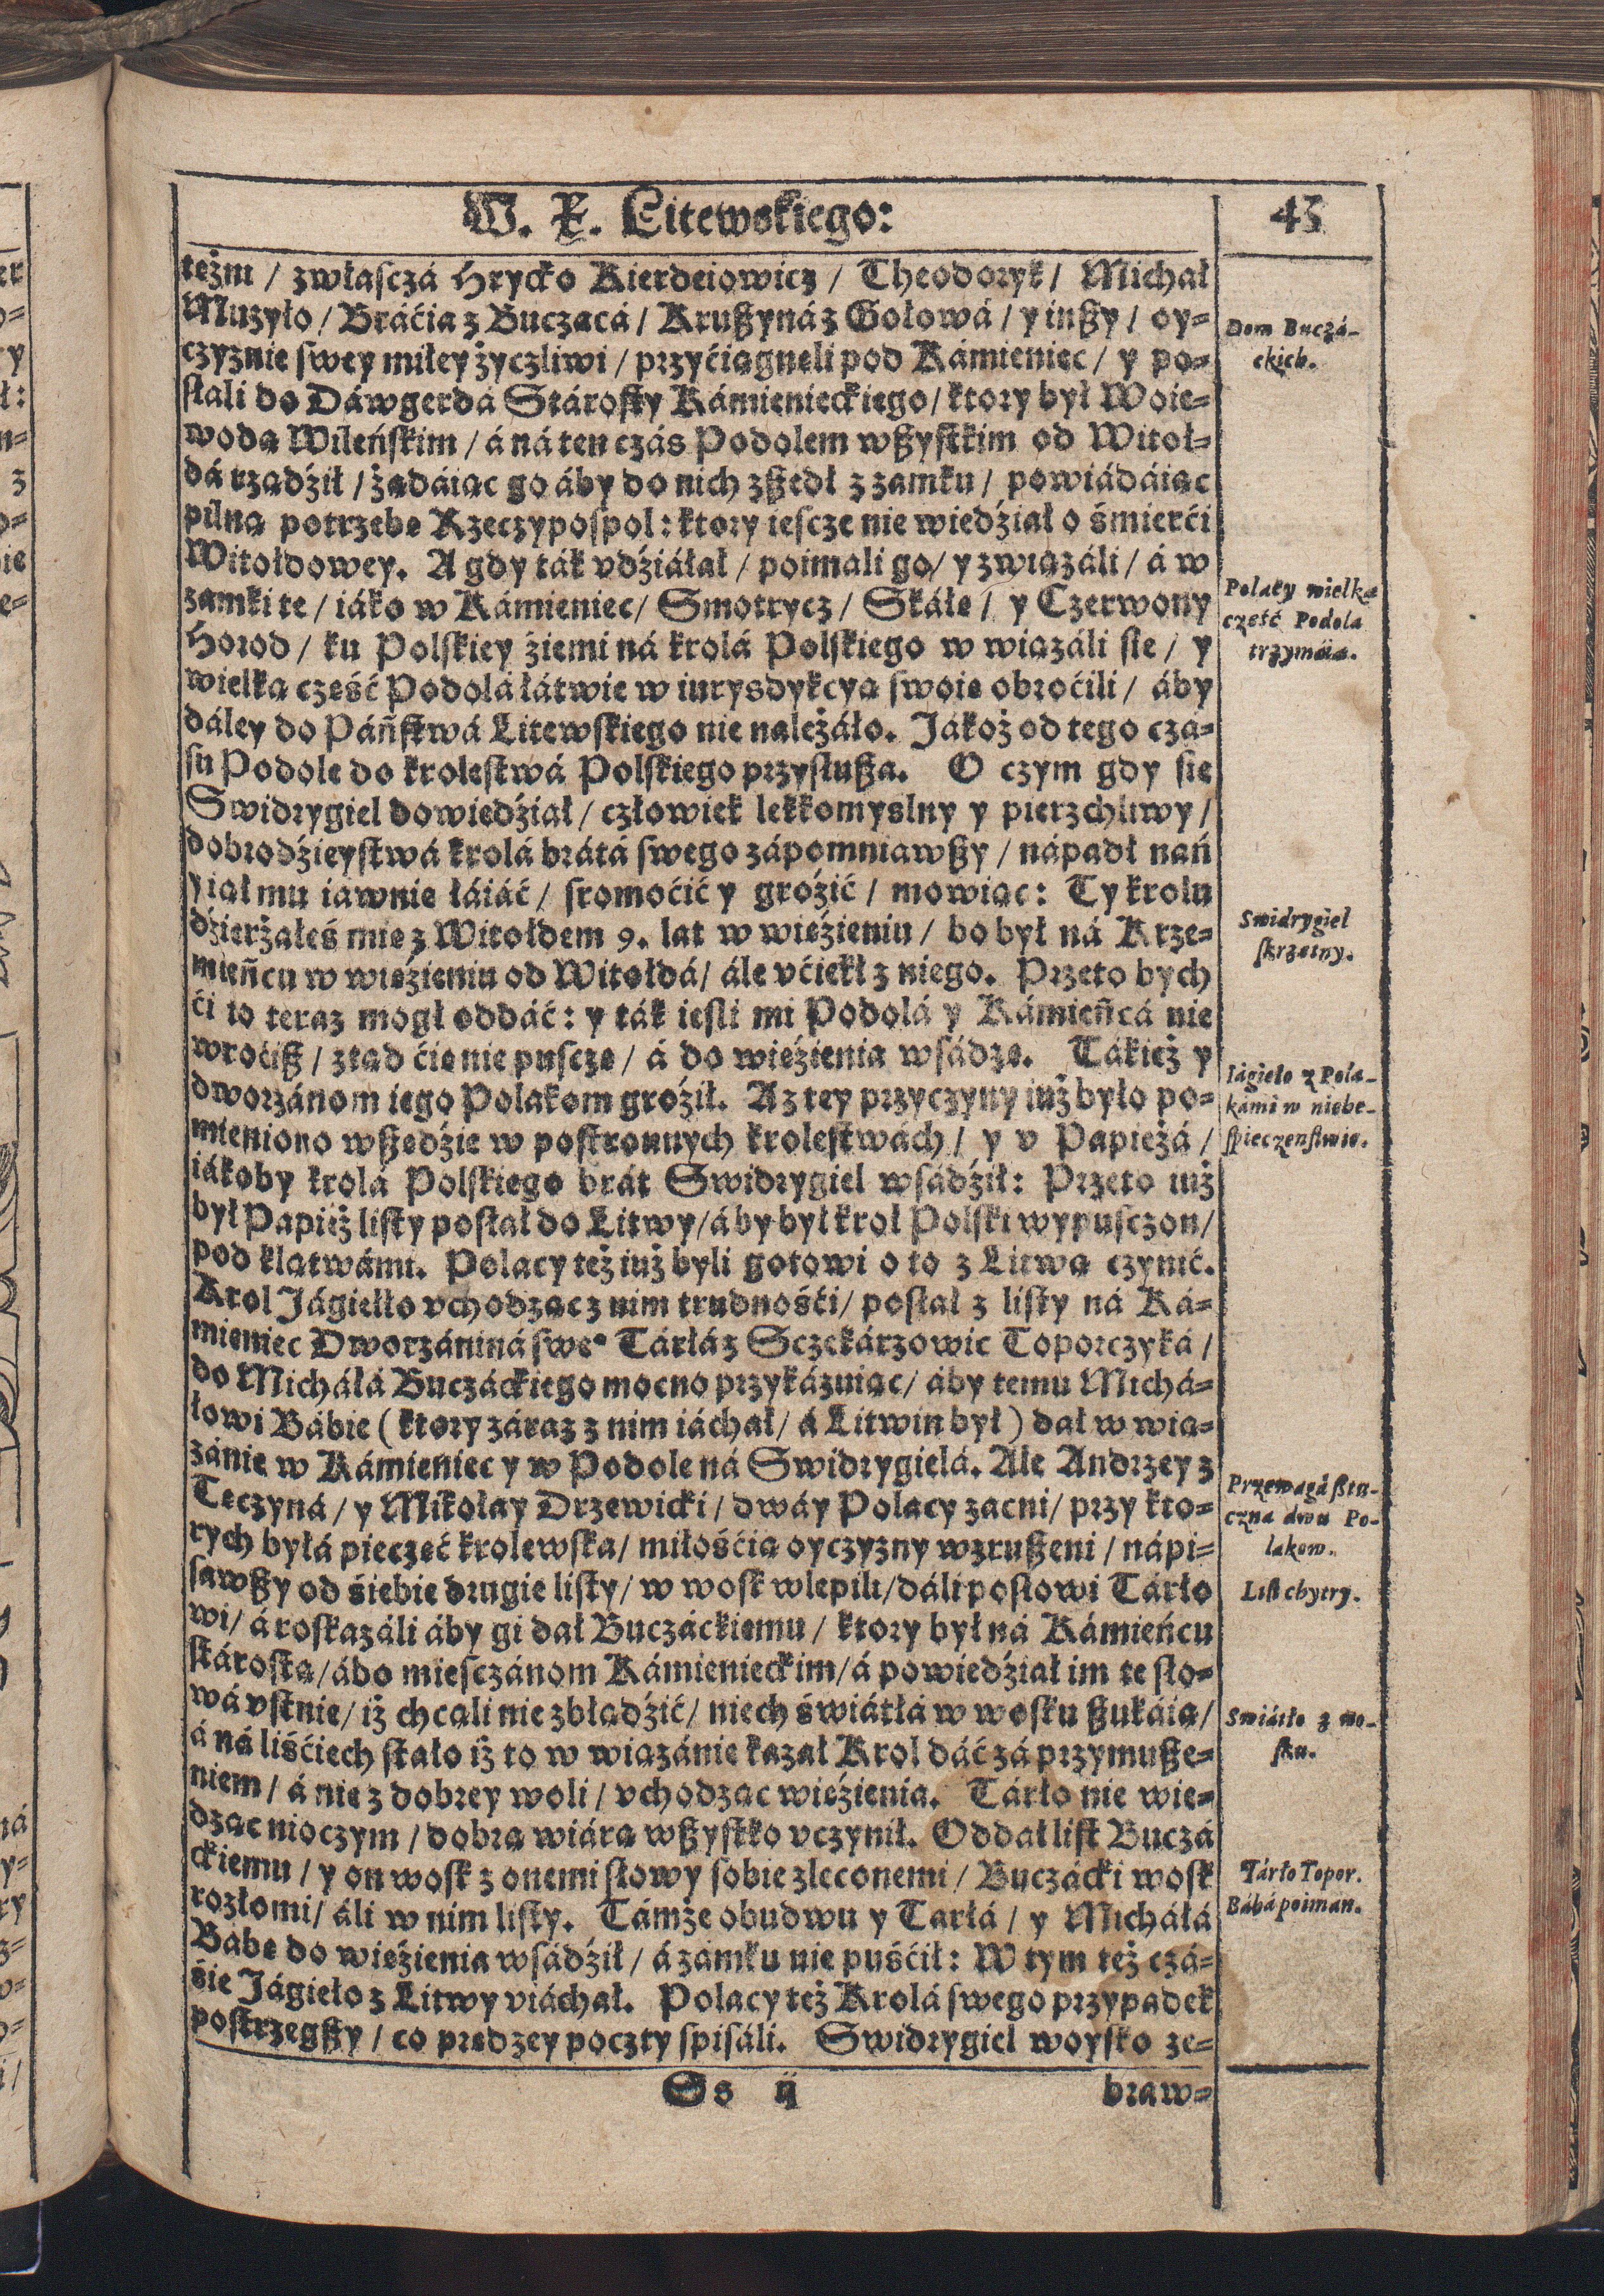 W. X. Litewskiego: 43
teżni / zwłasczá Hrycko Kierdeiowicz / Theodoryk / Michał
Muzyło / Bráćia z Buczacá / Krußyná z Gołowá / y inßy / oy-
czyznie swey miłey życzliwi / przyćiągneli pod Kámieniec / y po-
słali do Dáwgerdá Stárosty Kámienieckiego / ktory był Woie-
wodą Wileńskim / á ná ten czás Podolem wßystkim od Witoł-
dá rządźił / żądáiąc go áby do nich zßedł z zamku / powiádáiąc
pilną potrzebę Rzeczypospol: ktory iescze nie wiedźiał o śmierći
Witołdowey. A gdy ták vdźiáłał / poimali go / y związáli / á w
zamki te / iáko w Kámieniec / Smotrycz / Skáłę / y Czerwony
Horod / ku Polskiey źiemi ná krolá Polskiego w wiązáli się / y
wielką część Podolá łátwie w iurysdykcyą swoię obroćili / áby
dáley do Páñstwá Litewskiego nie należáło. Jákoż od tego cza-
su Podole do krolestwá Polskiego przysłußa. O czym gdy się
Swidrygieł dowiedźiał / człowiek lekkomyslny y pierzchliwy /
dobrodźieystwá krolá brátá swego zápomniawßy / nápadł nań
y iął mu iawnie łáiáć / sromoćić y groźić / mowiąc: Ty krolu
dźierżałeś mię z Witołdem 9. lat w więźieniu / bo był ná Krze-
mieñcu w więźieniu od Witołdá / ále vćiekł z niego. Przeto bych
ći to teraz mogł oddáć: y ták iesli mi Podolá y Kámieñcá nie
wroćiß / ztąd ćię nie pusczę / á do więźienia wsádzę. Tákież y
dworzánom iego Polakom groźił. A z tey przyczyny iuż było po-
mieniono wßędźie w postronnych krolestwách / y v Papieżá /
iákoby krolá Polskiego brát Swidrygieł wsádźił: Przeto iuż
był Papież listy posłał do Litwy / áby był krol Polski wypusczon /
pod klątwámi. Polacy też iuż byli gotowi o to z Litwą czynić.
Krol Jágiełło vchodząc z nim trudnośći / posłał z listy ná Ká-
mieniec Dworzániná swe° Tárłá z Sczekárzowic Toporczyká /
do Micháłá Buczáckiego mocno przykázuiąc / áby temu Michá-
łowi Bábie (ktory záraz z nim iáchał / á Litwin był) dał w wią-
zánie w Kámieniec y w Podole ná Swidrygiełá. Ale Andrzey z
Tęczyná / y Mikołay Drzewicki / dwáy Polacy zacni / przy kto-
rych byłá pieczęć krolewska / miłośćią oyczyzny wzrußeni / nápi-
sawßy od śiebie drugie listy / w wosk wlepili / dáli posłowi Tárło
wi / á roskazáli áby gi dał Buczáckiemu / ktory był ná Kámieńcu
stárostą / ábo miesczánom Kámienieckim / á powiedźiał im te sło-
wá vstnie / iż chcąli nie zbłądźić / niech świátłá w wosku ßukáią /
á ná liśćiech stało iż to w wiązánie kazał Krol dáć zá przymuße-
niem / á nie z dobrey woli / vchodząc więźienia. Tárło nie wie-
dząc nioczym / dobrą wiárą wßystko vczynił. Oddał list Buczá
ckiemu / y on wosk z onemi słowy sobie zleconemi / Buczácki wosk
rozłomi / áli w nim listy. Támże obudwu y Tarłá / y Micháłá
Bábę do więźienia wsádźił / á zamku nie puśćił: W tym też czá-
śie Jágieło z Litwy viáchał. Polacy też Krolá swego przypadek
postrzegßy / co prędzey poczty spisáli. Swidrygieł woysko ze-
Ss ij braw-
Dom Buczá-
ckich.
Polacy wielką
część Podola
trzymáią.
Swidrygieł
skrzętny.
Iágieło z Pola-
kámi w niebe-
spieczenstwie.
Przewagá ßtu-
czna dwu Po-
lakow.
List chytry.
Swiátło z wo-
sku.
Tárło Topor.
Bábá poiman.